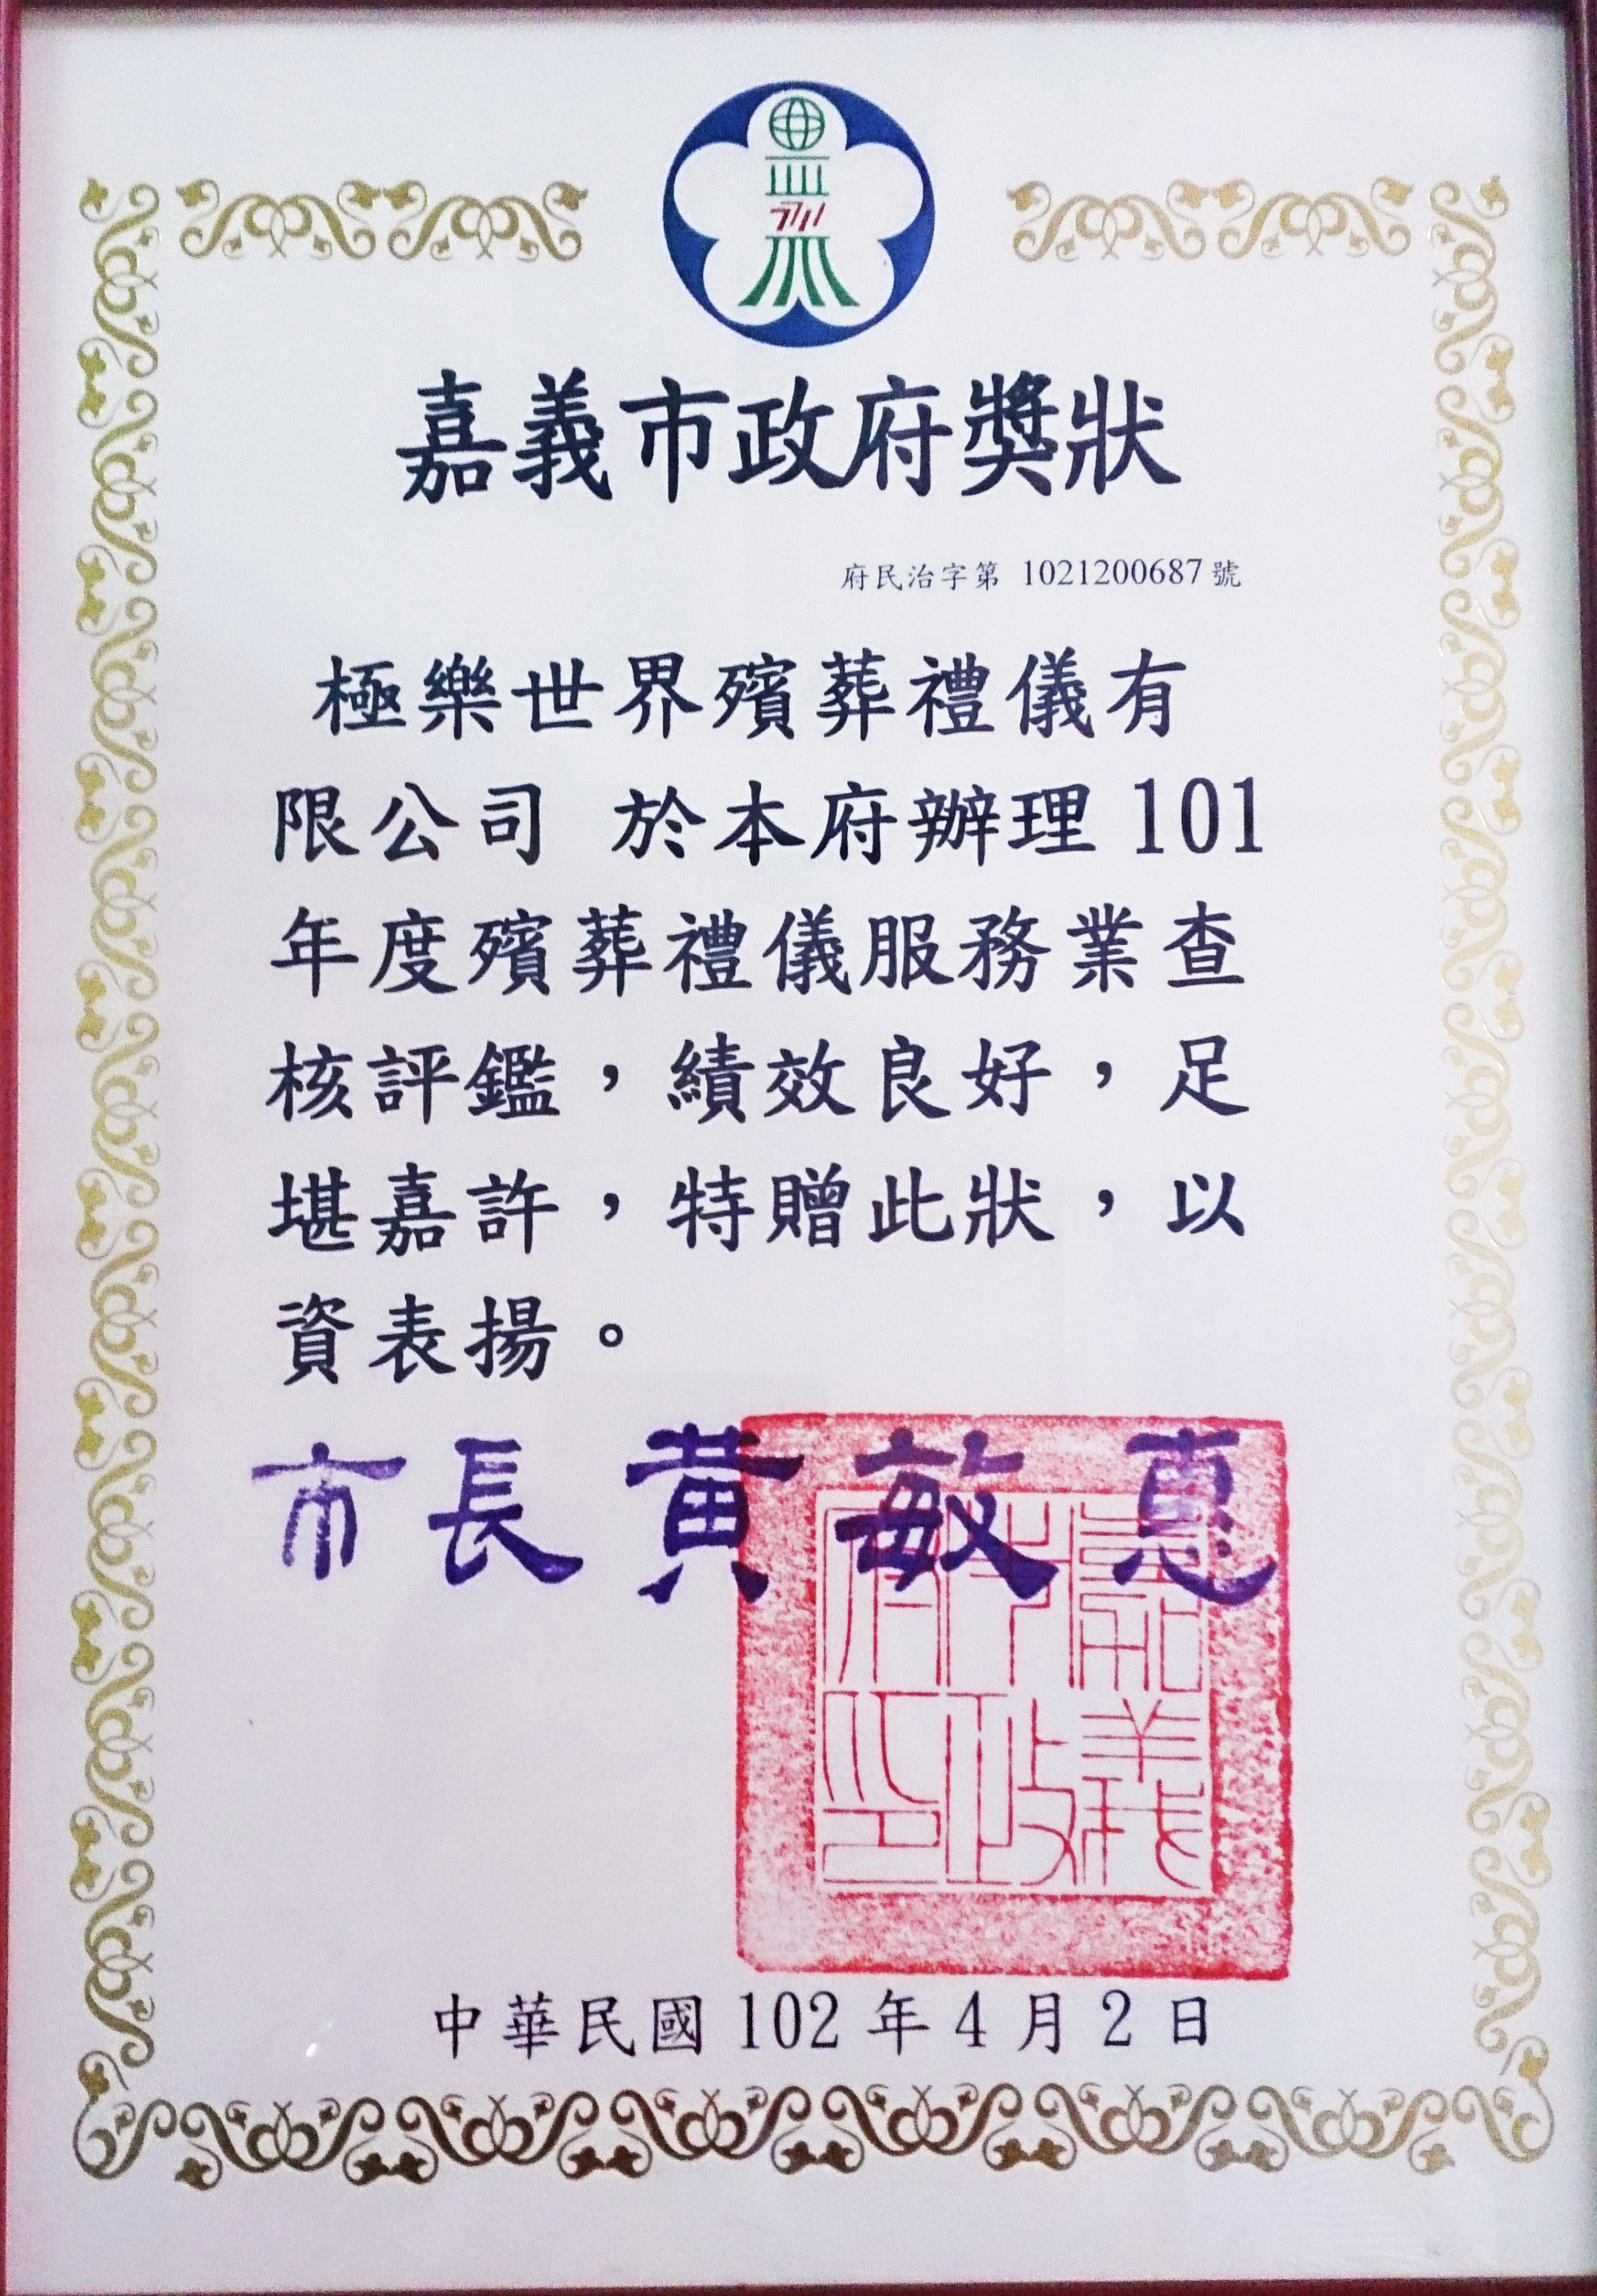 嘉義市政府獎狀
府民治字第 1021200687號
極樂世界殯葬禮儀有
限公司 於本府辦理101
年度殯葬禮儀服務業查
核評鑑，績效良好，足
堪嘉許，特贈此狀，以
資表揚。
市長 黃敏惠
嘉義市政府印
中華民國102年4月2日